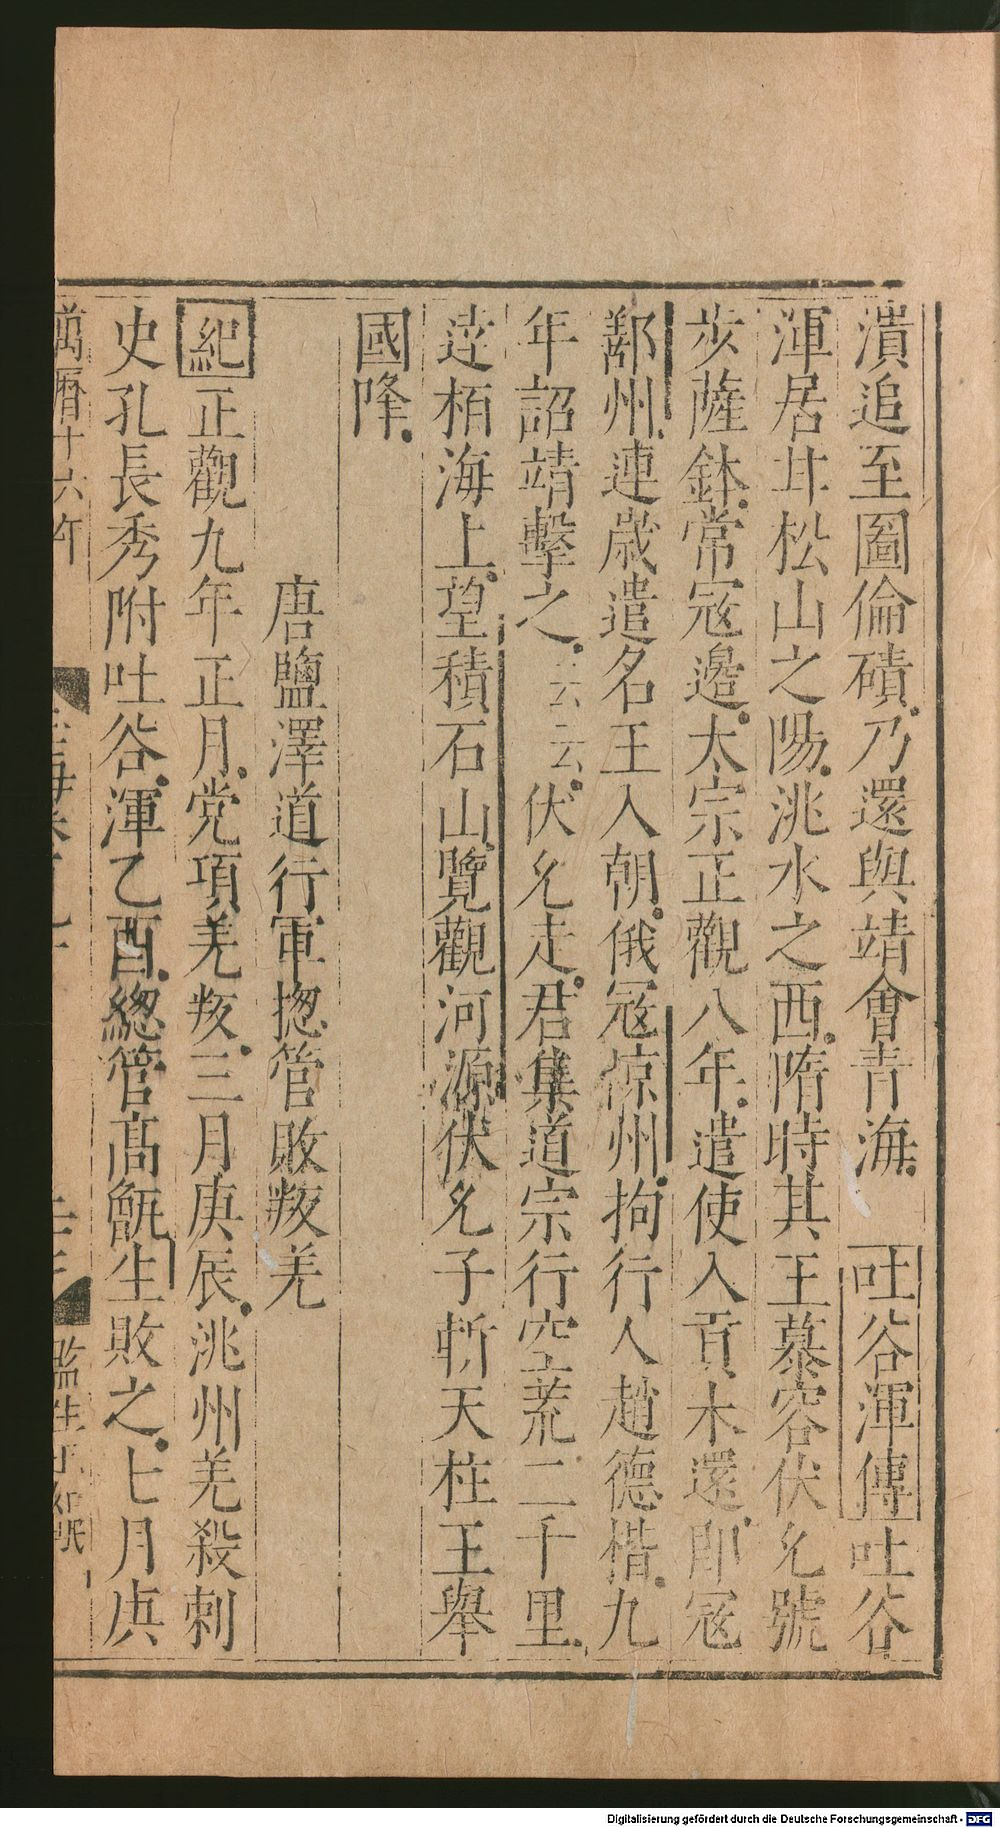 潰追至圖倫磧乃還與靖會青海 吐谷渾傳吐谷
渾居甘松山之陽洮水之西隋時其王慕容伏允號
步薩鉢常寇邊太宗正觀八年遣使入貢未還即寇
鄯州連歲遣名王入朝俄寇涼州拘行人趙德楷九
年詔靖擊之云云伏允走君集道宗行空荒二千里
逹栢海上望積石山覽觀河源伏允子斬天柱王舉
國降
唐鹽澤道行軍揔管敗叛羌
紀正觀九年正月党項羌叛三月庚辰洮州羌殺刺
史孔長秀附吐谷渾乙酉總管高甑生敗之七月庚
萬曆十六年
Digitalisierung gefördert durch die Deutsche Forschungsgemeinschaft - DFG